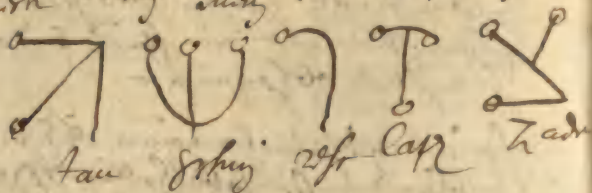 tau Schin resh Caph Zade